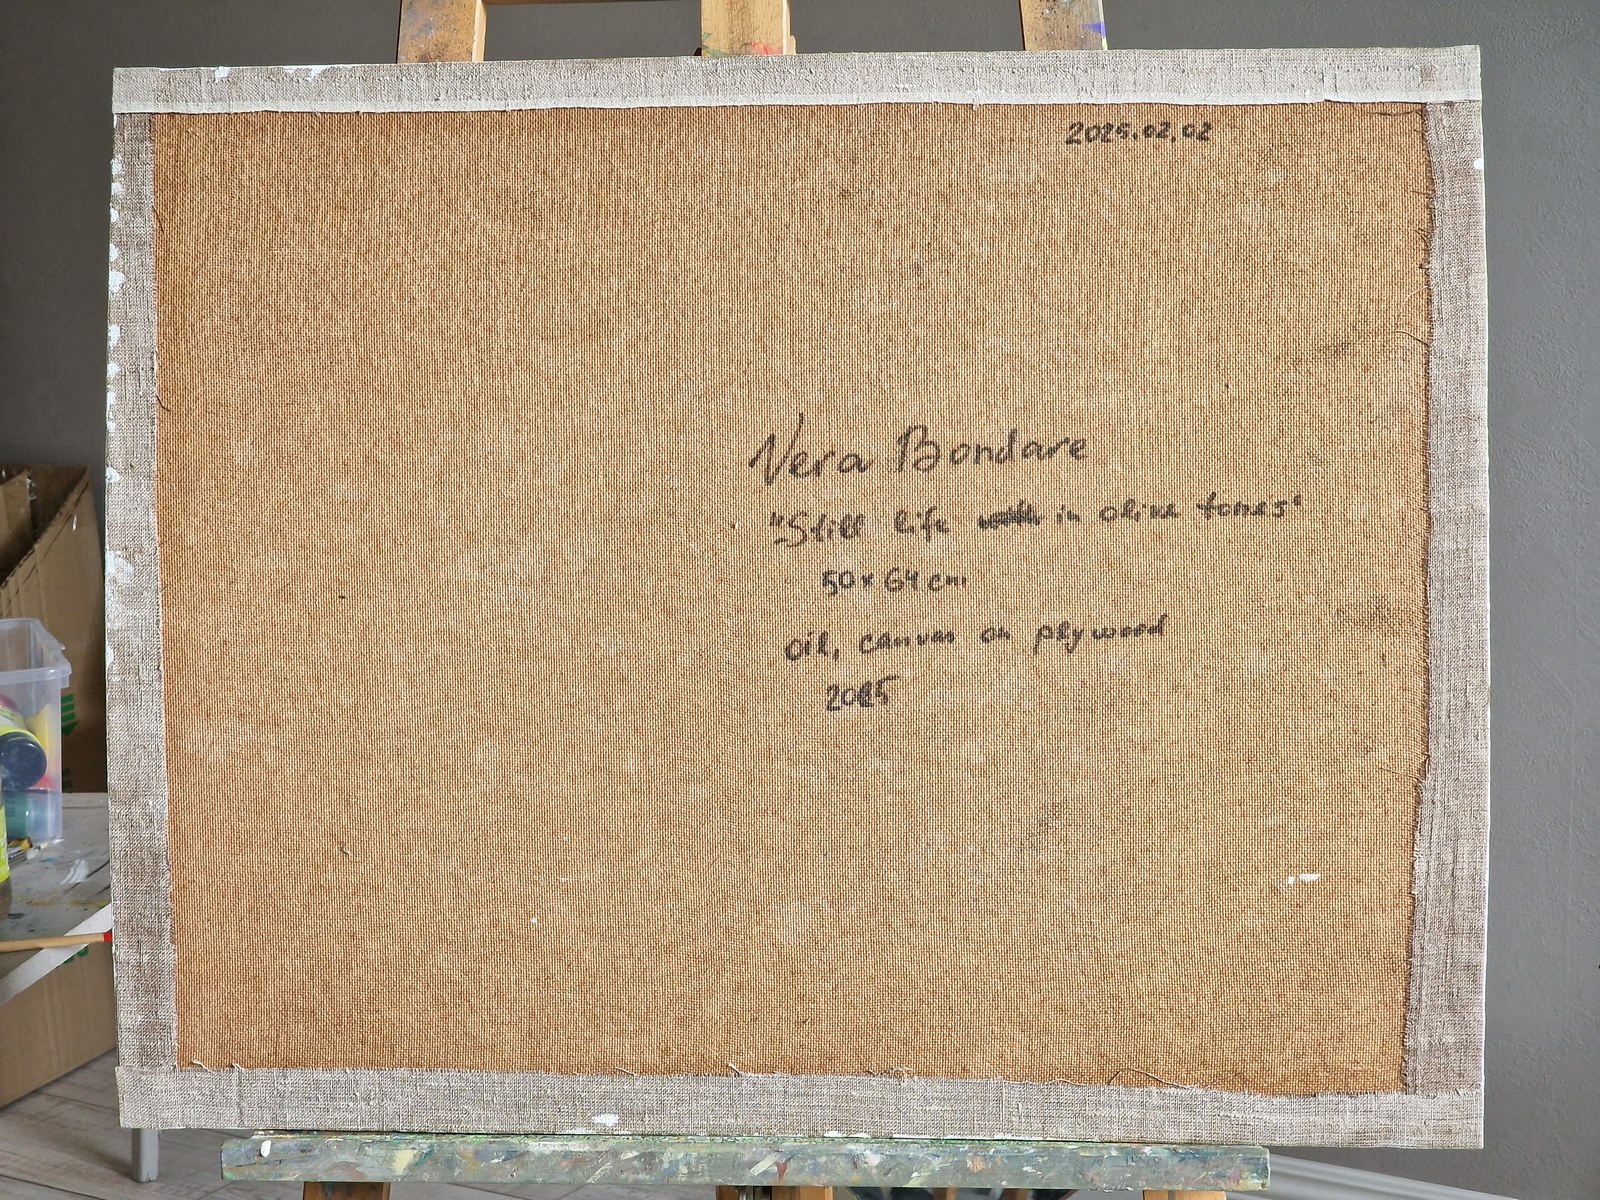 2025.02.02
Vera Bondare
"Still life in olive tones"
50 x 64 cm
oil, canvas on plywood
2025